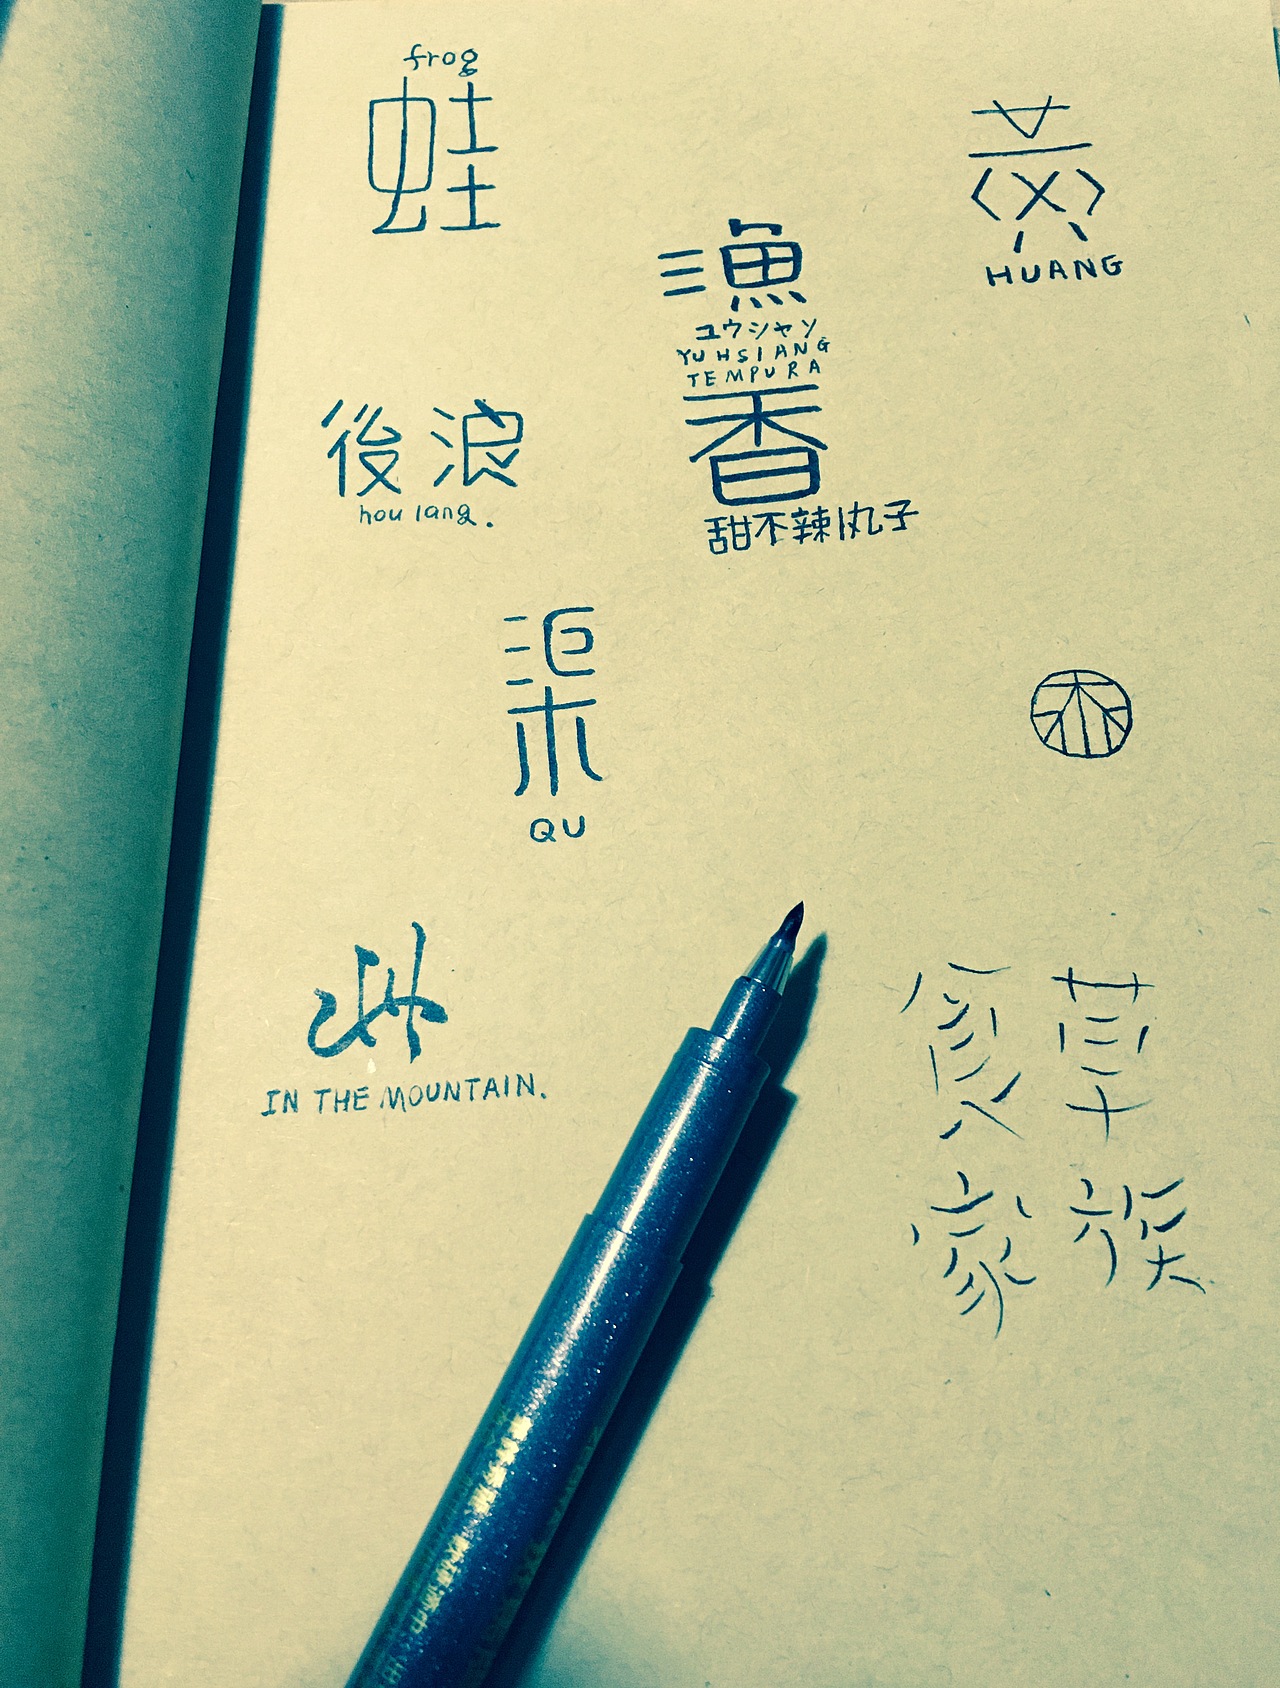 frog
蛙
黄
HUANG
漁
ユウシャン
YU HSIANG
TEMPURA
香
甜不辣|丸子
後浪
hou lang.
渠
QU
IN THE MOUNTAIN.
食草
家族